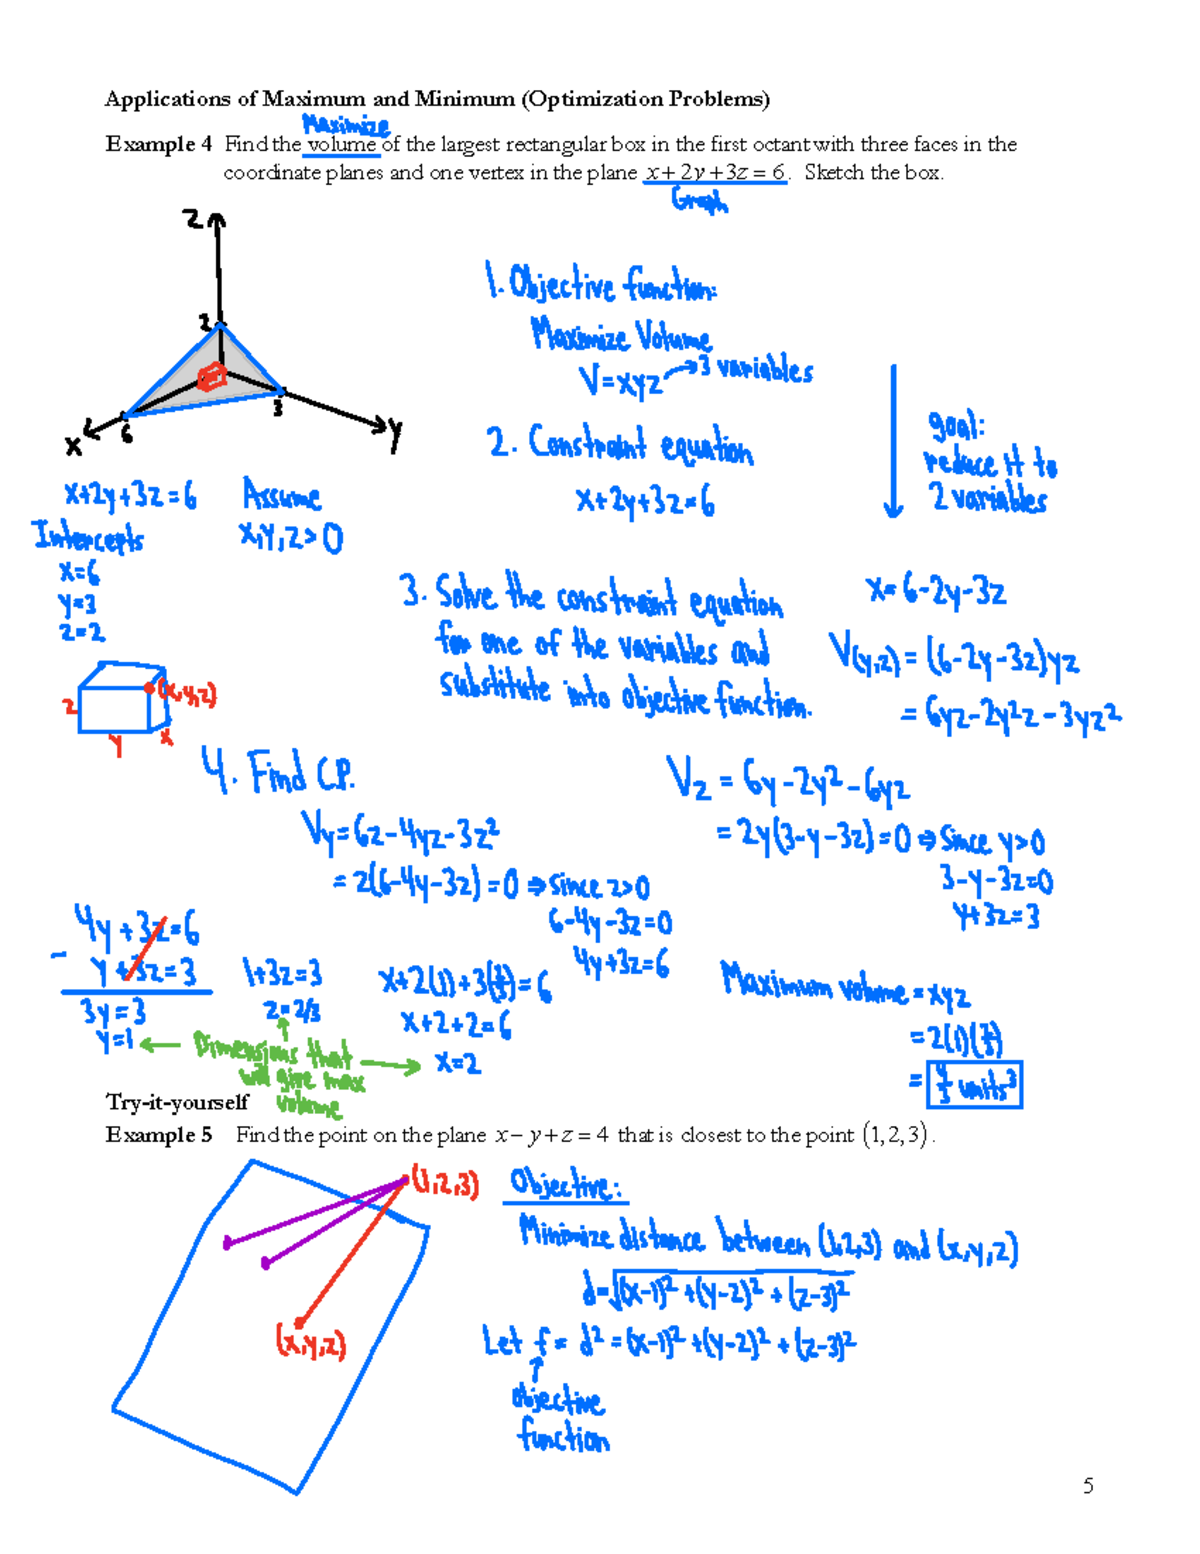 Applications of Maximum and Minimum (Optimization Problems)
Maximize
Example 4 Find the volume of the largest rectangular box in the first octant with three faces in the
coordinate planes and one vertex in the plane x + 2y + 3z = 6. Sketch the box.
Graph
z
2
3
6
x
y
1. Objective function:
Maximize Volume
V=xyz → 3 variables
2. Constraint equation
x+2y+3z=6
goal:
reduce it to
2 variables
x+2y+3z=6
Intercepts
x=6
y=3
z=2
Assume
x,y,z>0
3. Solve the constraint equation
for one of the variables and
substitute into objective function.
x=6-2y-3z
V(y,z)=(6-2y-3z)yz
=6yz-2y²z-3yz²
(x,y,z)
z
y
x
4. Find C.P.
Vy=6z-4yz-3z²
=z(6-4y-3z)=0 ⇒ since z>0
6-4y-3z=0
4y+3z=6
Vz=6y-2y²-6yz
=2y(3-y-3z)=0 ⇒ Since y>0
3-y-3z=0
y+3z=3
4y+3z=6
- y+3z=3
3y=3
y=1
1+3z=3
z=2/3
x+2(1)+3(2/3)=6
x+2+2=6
x=2
Dimensions that
will give max
volume
Maximum volume=xyz
=2(1)(2/3)
=4/3 units³
Try-it-yourself
Example 5 Find the point on the plane x − y + z = 4 that is closest to the point (1,2,3).
(1,2,3)
(x,y,z)
Objective:
Minimize distance between (1,2,3) and (x,y,z)
d=√(x-1)²+(y-2)²+(z-3)²
Let f=d²=(x-1)²+(y-2)²+(z-3)²
objective
function
5